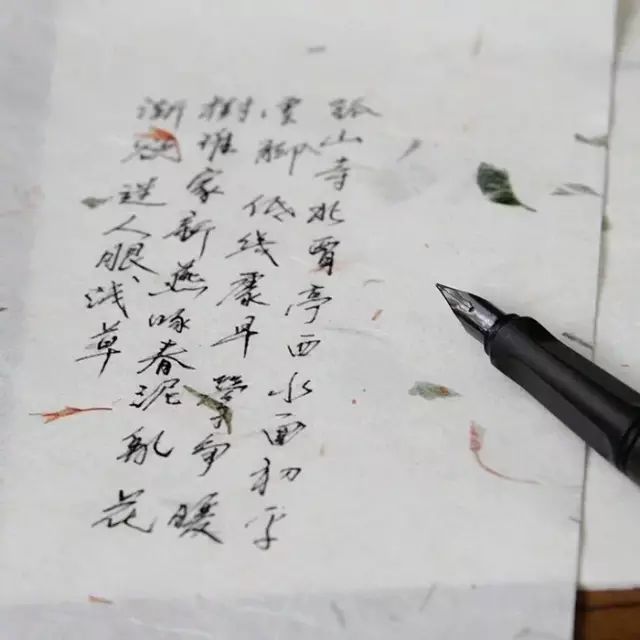 孤山寺北賈亭西水面初平
雲脚低幾處早鶯争暖
樹谁家新燕啄春泥乱花
渐欲迷人眼浅草